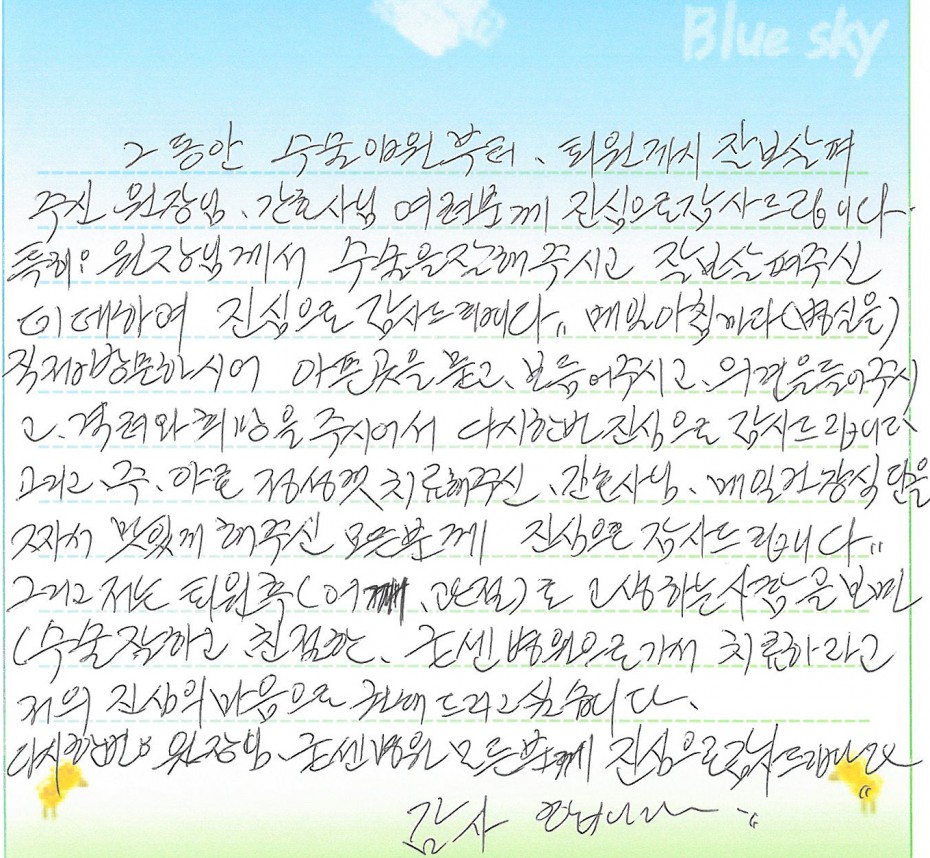 Blue sky
그동안 수술입원부터、퇴원까지 잘보살펴
주신 원장님、간호사님 여러분께 진심으로감사드립니다.
특히 원장님께서 수술을잘해주시고 잘보살펴주신
데대하여 진심으로 감사드립니다〃 매일아침마다(병실을)
직접방문하시어 아픈곳을묻고、보듬어주시고、의견을들어주시
고、격려와희망을주시어서 다시한번진심으로 감사드립니다
그리고、주、야로 정성껏치료해주신、간호사님、매일건강식단을
짜서 맛있게해주신 모든분께 진심으로감사드립니다〃
그리고 저는 퇴원후(어깨、관절)로 고생하는사람을보면
(수술잘하고 친절한、굿센병원으로가서 치료하라고
저의 진심의마음으로 권해드리고싶습니다、
다시한번 원장님、굿센병원 모든분께 진심으로감사드립니다
감사 합니다